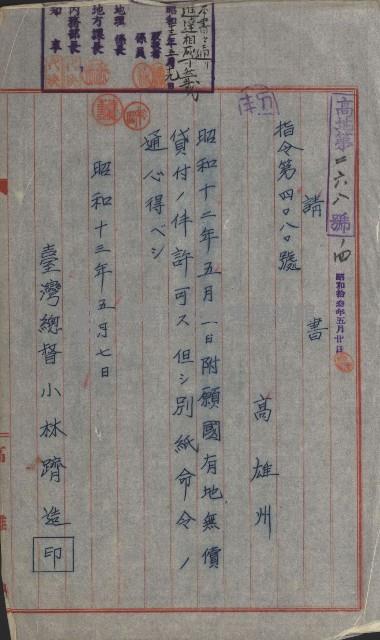 高地第二六八號ノ四
昭和拾叁年五月廿日
請書
指令第四〇八〇號
高雄州
昭和十二年五月一日附願國有地無償
貸付ノ件許可ス但シ別紙命令ノ
通心得ベシ
昭和十三年五月七日
臺灣總督小林躋造
印
本書ノ通リ
進達相成可然哉
昭和十三年五月十九日
係員
地理係長
地方課長
內務部長
知事